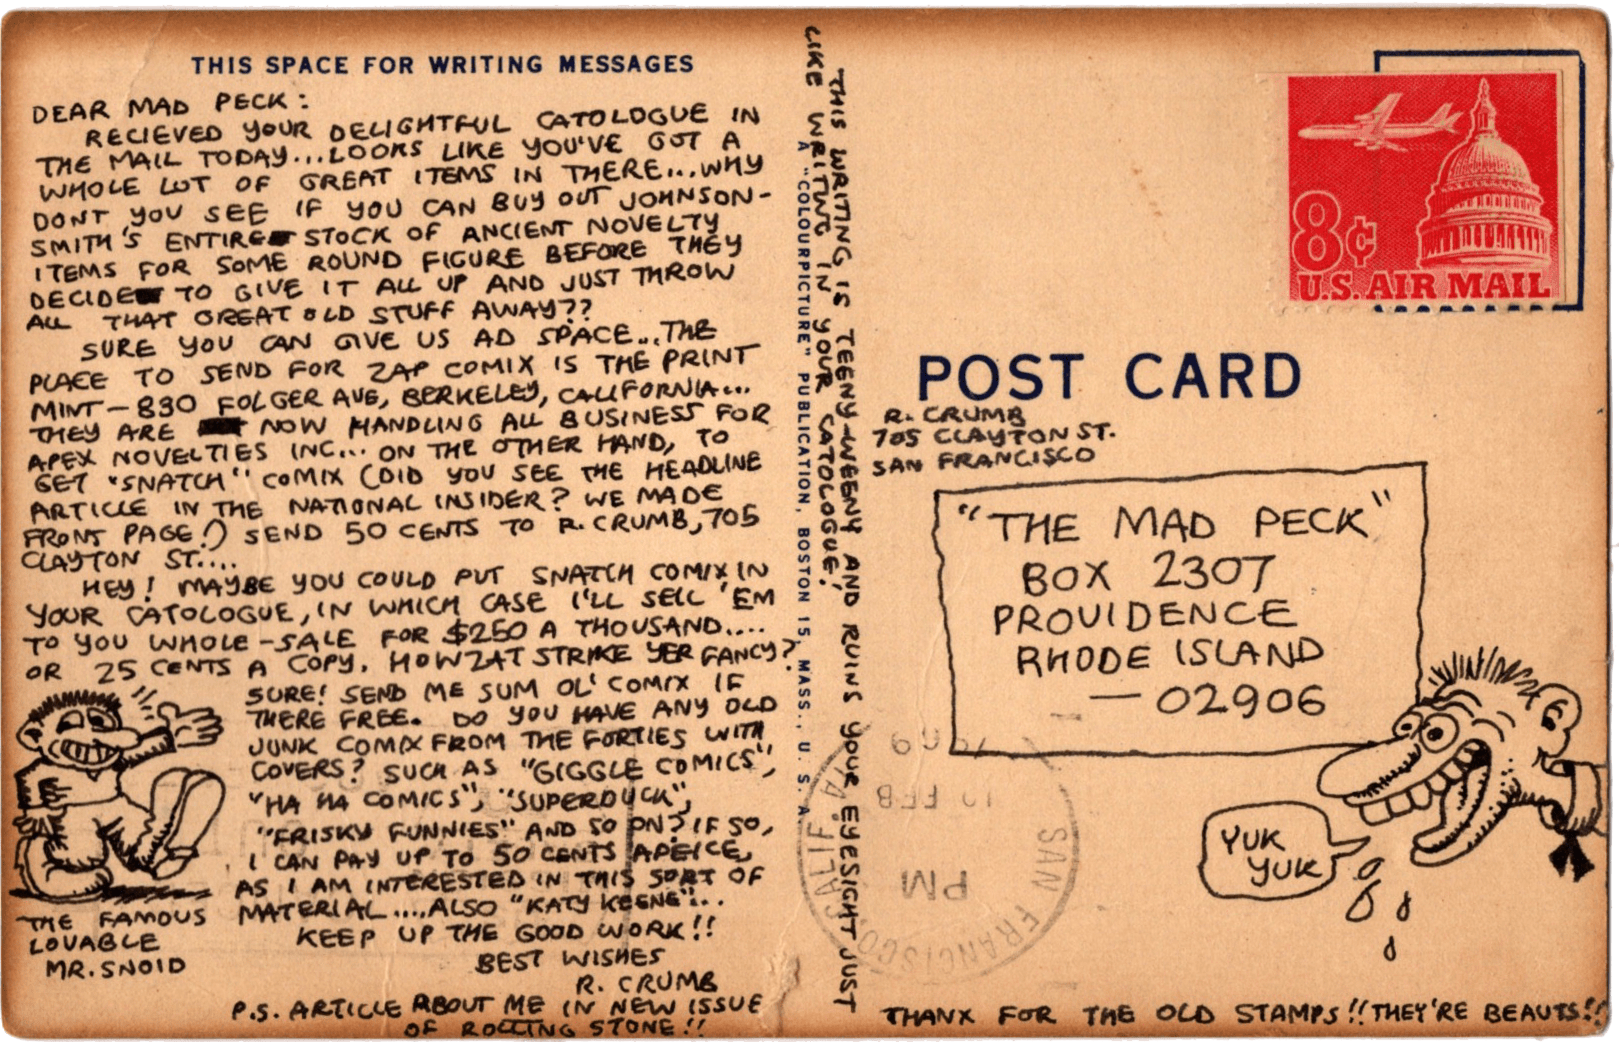 THIS SPACE FOR WRITING MESSAGES
DEAR MAD PECK:
RECIEVED YOUR DELIGHTFUL CATOLOGUE IN
THE MAIL TODAY...LOOKS LIKE YOU'VE GOT A
WHOLE LOT OF GREAT ITEMS IN THERE...WHY
DONT YOU SEE IF YOU CAN BUY OUT JOHNSON-
SMITH'S ENTIRE STOCK OF ANCIENT NOVELTY
ITEMS FOR SOME ROUND FIGURE BEFORE THEY
DECIDE TO GIVE IT ALL UP AND JUST THROW
ALL THAT GREAT OLD STUFF AWAY??
SURE YOU CAN GIVE US AD SPACE...THE
PLACE TO SEND FOR ZAP COMIX IS THE PRINT
MINT—830 FOLGER AVE, BERKELEY, CALIFORNIA...
THEY ARE NOW HANDLING ALL BUSINESS FOR
APEX NOVELTIES INC... ON THE OTHER HAND, TO
GET "SNATCH" COMIX (DID YOU SEE THE HEADLINE
ARTICLE IN THE NATIONAL INSIDER? WE MADE
FRONT PAGE!) SEND 50 CENTS TO R. CRUMB, 705
CLAYTON ST....
HEY! MAYBE YOU COULD PUT SNATCH COMIX IN
YOUR CATOLOGUE, IN WHICH CASE I'LL SELL 'EM
TO YOU WHOLE-SALE FOR $250 A THOUSAND....
OR 25 CENTS A COPY. HOWZAT STRIKE YER FANCY?
SURE! SEND ME SUM OL' COMIX IF
THERE FREE. DO YOU HAVE ANY OLD
JUNK COMIX FROM THE FORTIES WITH
COVERS? SUCH AS "GIGGLE COMICS",
"HA HA COMICS", "SUPERDUCK",
"FRISKY FUNNIES" AND SO ON? IF SO,
I CAN PAY UP TO 50 CENTS APEICE,
AS I AM INTERESTED IN THIS SORT OF
MATERIAL....ALSO "KATY KEENE"...
KEEP UP THE GOOD WORK!!
BEST WISHES
R. CRUMB
P.S. ARTICLE ABOUT ME IN NEW ISSUE
OF ROLLING STONE!!
THE FAMOUS
LOVABLE
MR. SNOID
THIS WRITING IS TEENY-WEENY AND RUINS YOUR EYESIGHT JUST
LIKE WRITING IN YOUR CATOLOGUE!
A "COLOURPICTURE" PUBLICATION, BOSTON 15, MASS., U. S. A.
8¢
U.S. AIR MAIL
POST CARD
R. CRUMB
705 CLAYTON ST.
SAN FRANCISCO
"THE MAD PECK"
BOX 2307
PROVIDENCE
RHODE ISLAND
—02906
YUK
YUK
SAN FRANCISCO, CALIF.
PM
FEB
THANX FOR THE OLD STAMPS!! THEY'RE BEAUTS!!